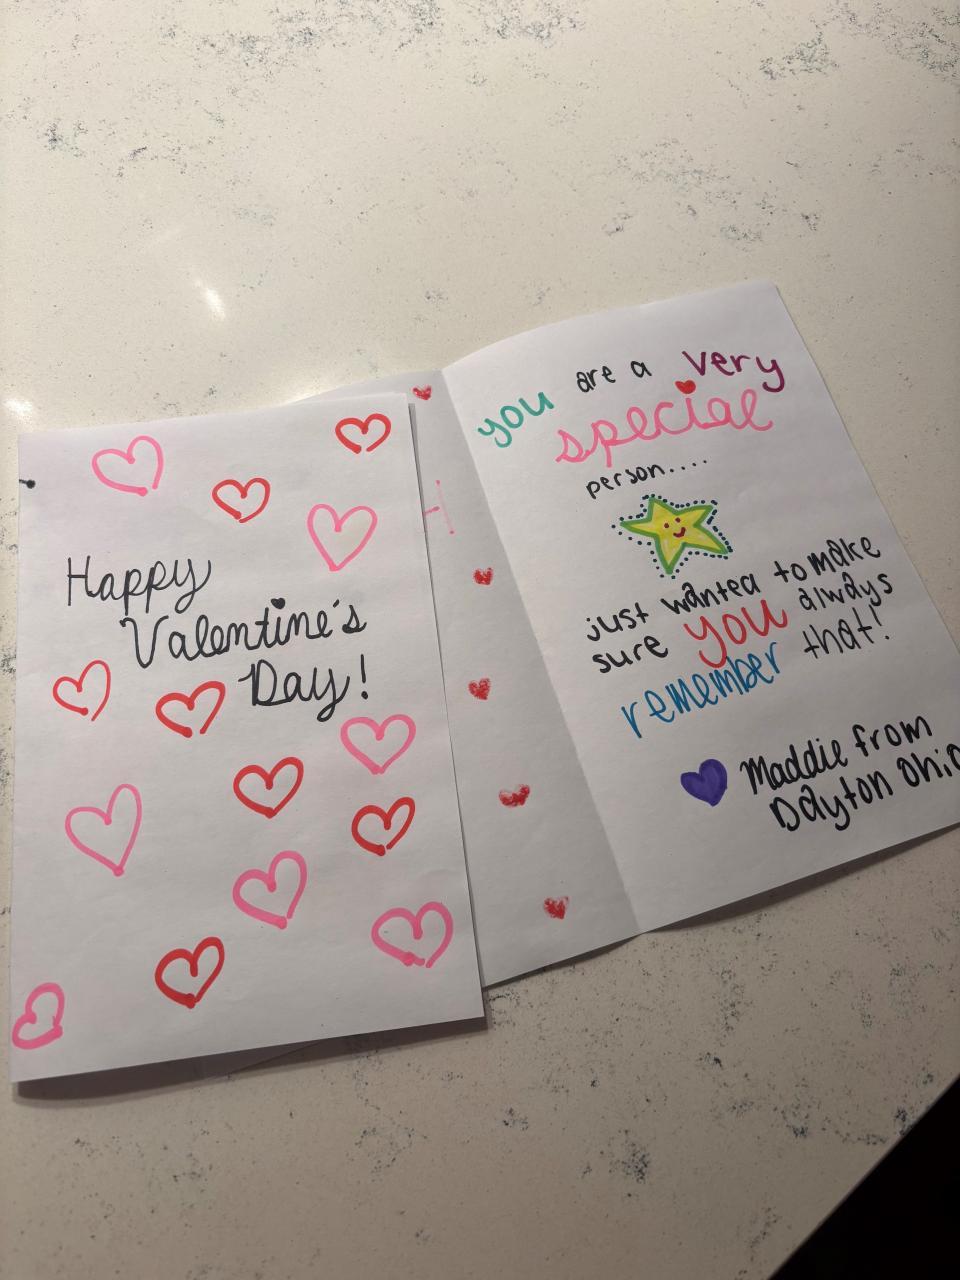 Happy
Valentine's
Day!
you are a very
special
person....
just wanted to make
sure you always
remember that!
Maddie from
Dayton Ohio